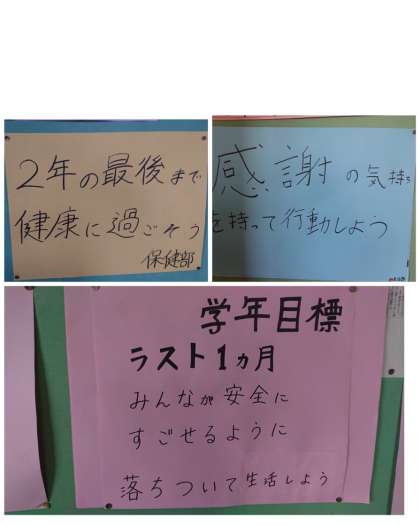 2年の最後まで
健康に過ごそう
保健部
感謝の気持
を持って行動しよう
学年目標
ラスト1ヵ月
みんなが安全に
すごせるように
落ちついて生活しよう